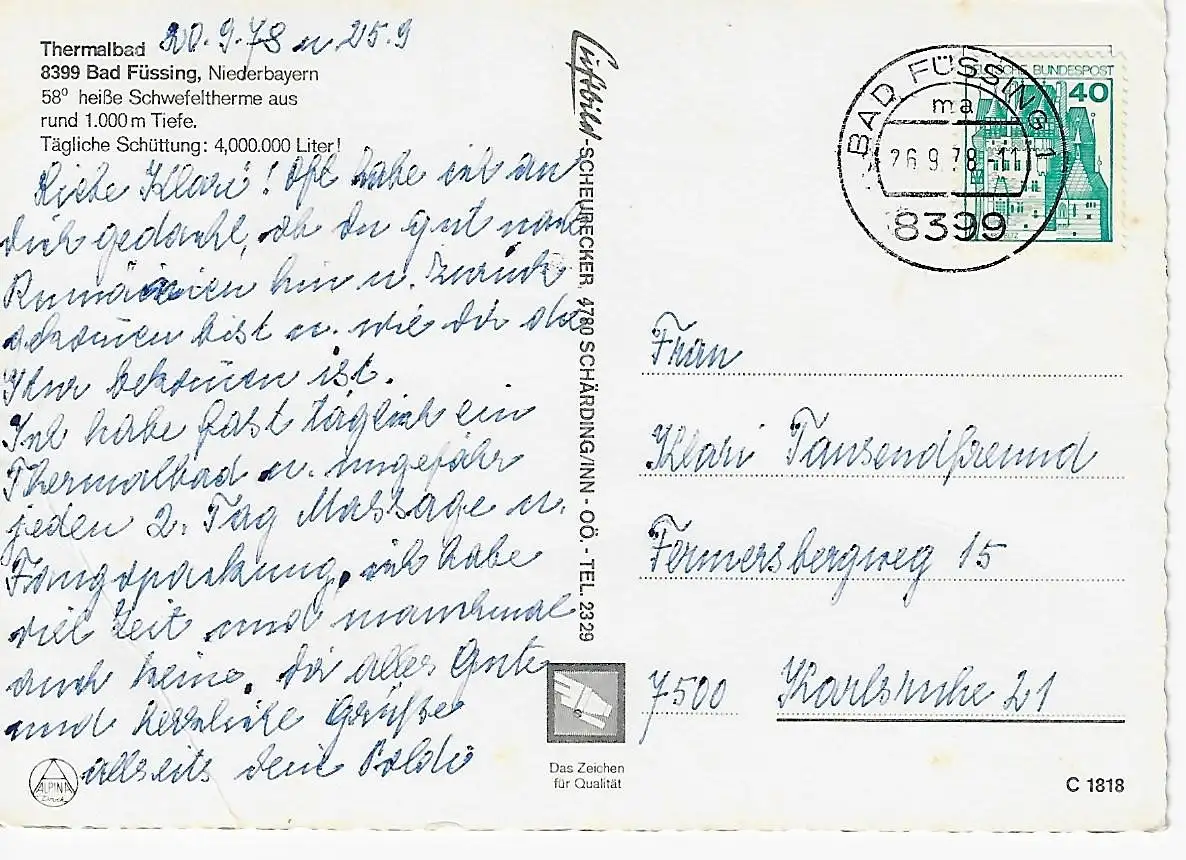 20.9.78 u 25.9
Thermalbad
8399 Bad Füssing, Niederbayern
58° heiße Schwefeltherme aus
rund 1.000 m Tiefe.
Tägliche Schüttung: 4,000.000 Liter!
Liebe Klari! Oft habe ich an
dich gedacht, ob du gut nach
Rumänien hin u. zurück
gekom̄en bist u. wie dir die
Kur bekom̄en ist.
Ich habe fast täglich ein
Thermalbad u. ungefähr
jeden 2. Tag Massage u.
Fangopackung, ich habe
viel Zeit und manchmal
auch keine. Dir alles Gute
und herzliche Grüße
allseits deine Poldi
ALPINA
Druck
Luftbild-SCHEURECKER, 4780 SCHÄRDING/INN - OÖ. - TEL. 2329
Das Zeichen
für Qualität
BAD FÜSSING 1
ma
26.9.78-11
8399
DEUTSCHE BUNDESPOST
40
Frau
Klari Tausendfreund
Fermersbergweg 15
7500 Karlsruhe 21
C 1818